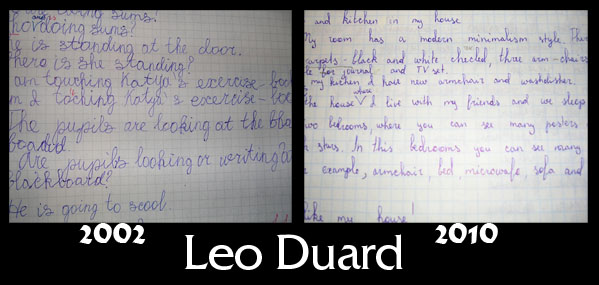 doing sums?
doing sums?
is standing at the door.
is she standing?
am touching Katya's exercise-
I toching Katya's exercise-
The pupils are looking at the
board
Are pupils looking or writing
blackboard?
He is going to scool.
and kitchen in my house
My room has a modern minimalism style.
carpets - black and white checked, three arm-
for journal and TV set.
my kitchen I have new armchair and
the house where I live with my friends and we sleep
two bedrooms, where you can see many posters
stars. In this bedrooms you can see many
example, armchair, bed, microwafe, sofa and
like my house!
2002
Leo Duard
2010